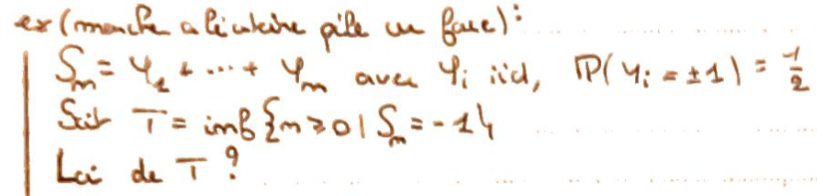 ex (marche aléatoire pile ou face) :
Sₙ = Y₁ + ... + Yₙ avec Yᵢ iid, ℙ(Yᵢ = ±1) = 1/2
Soit T = inf{n ≥ 0 | Sₙ = -1}
Loi de T ?